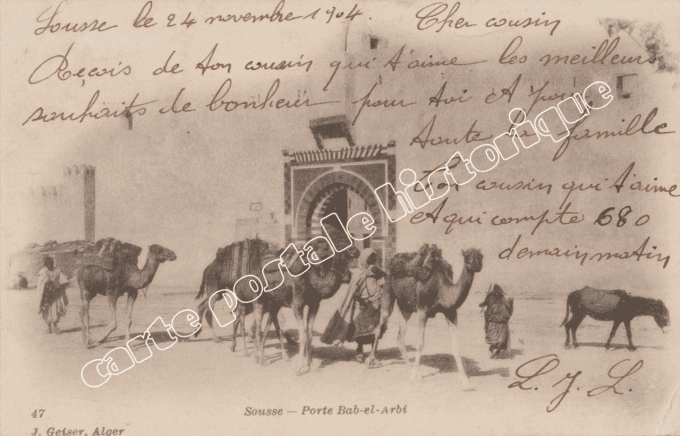 Sousse le 24 novembre 1904. Cher cousin
Reçois de ton cousin qui t'aime les meilleurs
souhaits de bonheur pour toi et pour
toute la famille
Ton cousin qui t'aime
et qui compte 680
demain matin
L. J. L.
carte postale historique
47
Sousse — Porte Bab-el-Arbi
J. Geiser, Alger